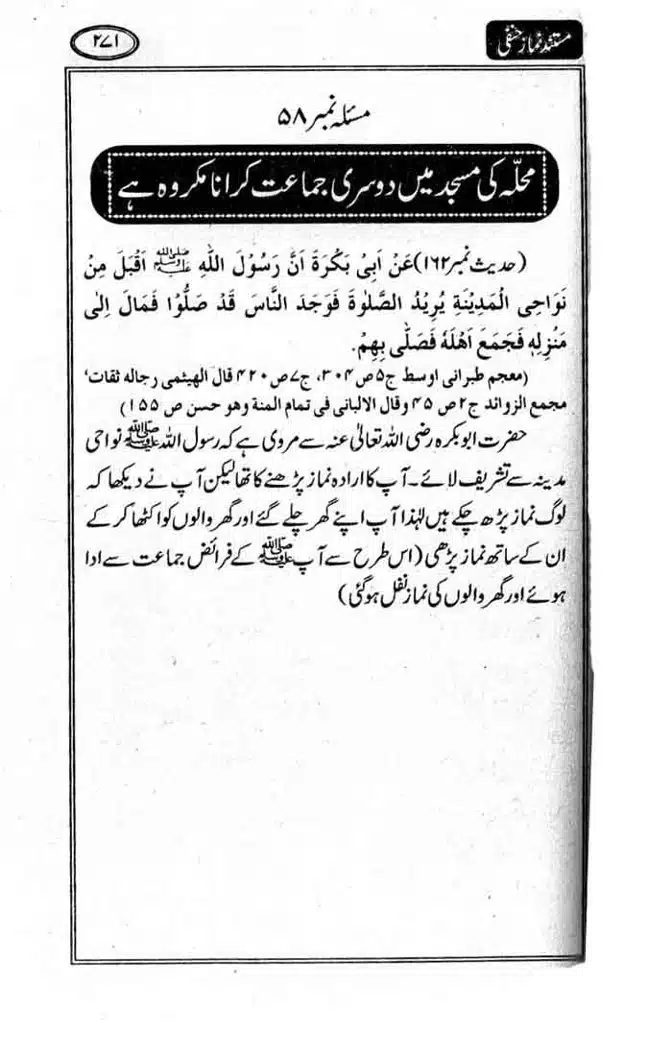 مستند نماز حنفی
۲۷۱
مسئلہ نمبر ۵۸
محلّہ کی مسجد میں دوسری جماعت کرانا مکروہ ہے
(حدیث نمبر ۱۶۲) عَنْ اَبِیْ بَکْرَةَ اَنَّ رَسُوْلَ اللّٰهِ ﷺ اَقْبَلَ مِنْ
نَوَاحِی الْمَدِیْنَةِ یُرِیْدُ الصَّلٰوةَ فَوَجَدَ النَّاسَ قَدْ صَلُّوْا فَمَالَ اِلٰی
مَنْزِلِهٖ فَجَمَعَ اَهْلَهٗ فَصَلّٰی بِهِمْ.
(معجم طبرانی اوسط ج۵ص۳۰۴، ج۷ص۴۲۰ قال الهیثمی رجاله ثقات'
مجمع الزوائد ج۲ص ۴۵ وقال الالبانی فی تمام المنة وهو حسن ص ۱۵۵)
حضرت ابوبکرہ رضی اللہ تعالیٰ عنہ سے مروی ہے کہ رسول اللہ ﷺ نواحی
مدینہ سے تشریف لائے۔ آپ کا ارادہ نماز پڑھنے کا تھا لیکن آپ نے دیکھا کہ
لوگ نماز پڑھ چکے ہیں لہٰذا آپ اپنے گھر چلے گئے اور گھر والوں کو اکٹھا کر کے
ان کے ساتھ نماز پڑھی (اس طرح سے آپ ﷺ کے فرائض جماعت سے ادا
ہوئے اور گھر والوں کی نماز نفل ہو گئی)